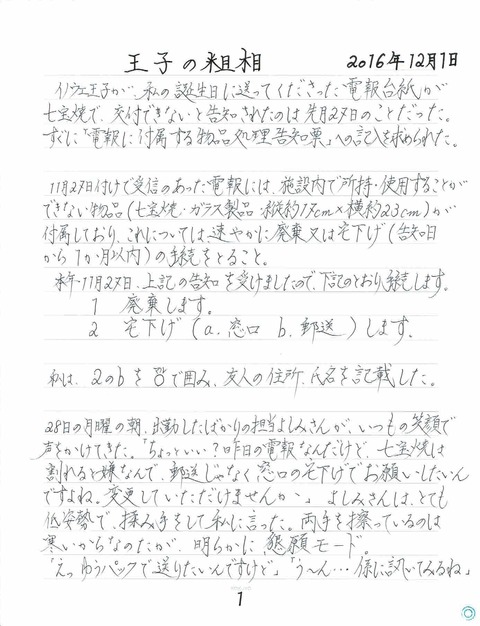 王子の粗相 2016年12月1日
イノウエ王子が、私の誕生日に送ってくださった"電報台紙"が
七宝焼で、交付できないと告知されたのは先月27日のことだった。
すぐに「電報に付属する物品処理告知票」への記入を求められた。
11月27日付けで受信のあった電報には、施設内で所持・使用することが
できない物品(七宝焼・ガラス製品・縦約17cm×横約23cm)が
付属しており、これについては速やかに廃棄又は宅下げ(告知日
から1か月以内)の手続をとること。
本年・11月27日、上記の告知を受けましたので、下記のとおり手続します。
1 廃棄します。
2 宅下げ(a.窓口 b.郵送)します。
私は、2のbを で囲み、友人の住所、氏名を記載した。
28日の月曜の朝、出勤したばかりの担当よしみさんが、いつもの笑顔で
声をかけてきた。「ちょっといい?昨日の電報なんだけど、七宝焼は
割れると嫌なんで、郵送じゃなく窓口の宅下げでお願いしたいん
ですよね。変更していただけませんか」よしみさんは、とても
低姿勢で、揉み手をして私に言った。両手を擦っているのは
寒いからなのだが、明らかに懇願モード。
「えっ ゆうパックで送りたいんですけど」「う〜ん…係に訊いてみるね」
1